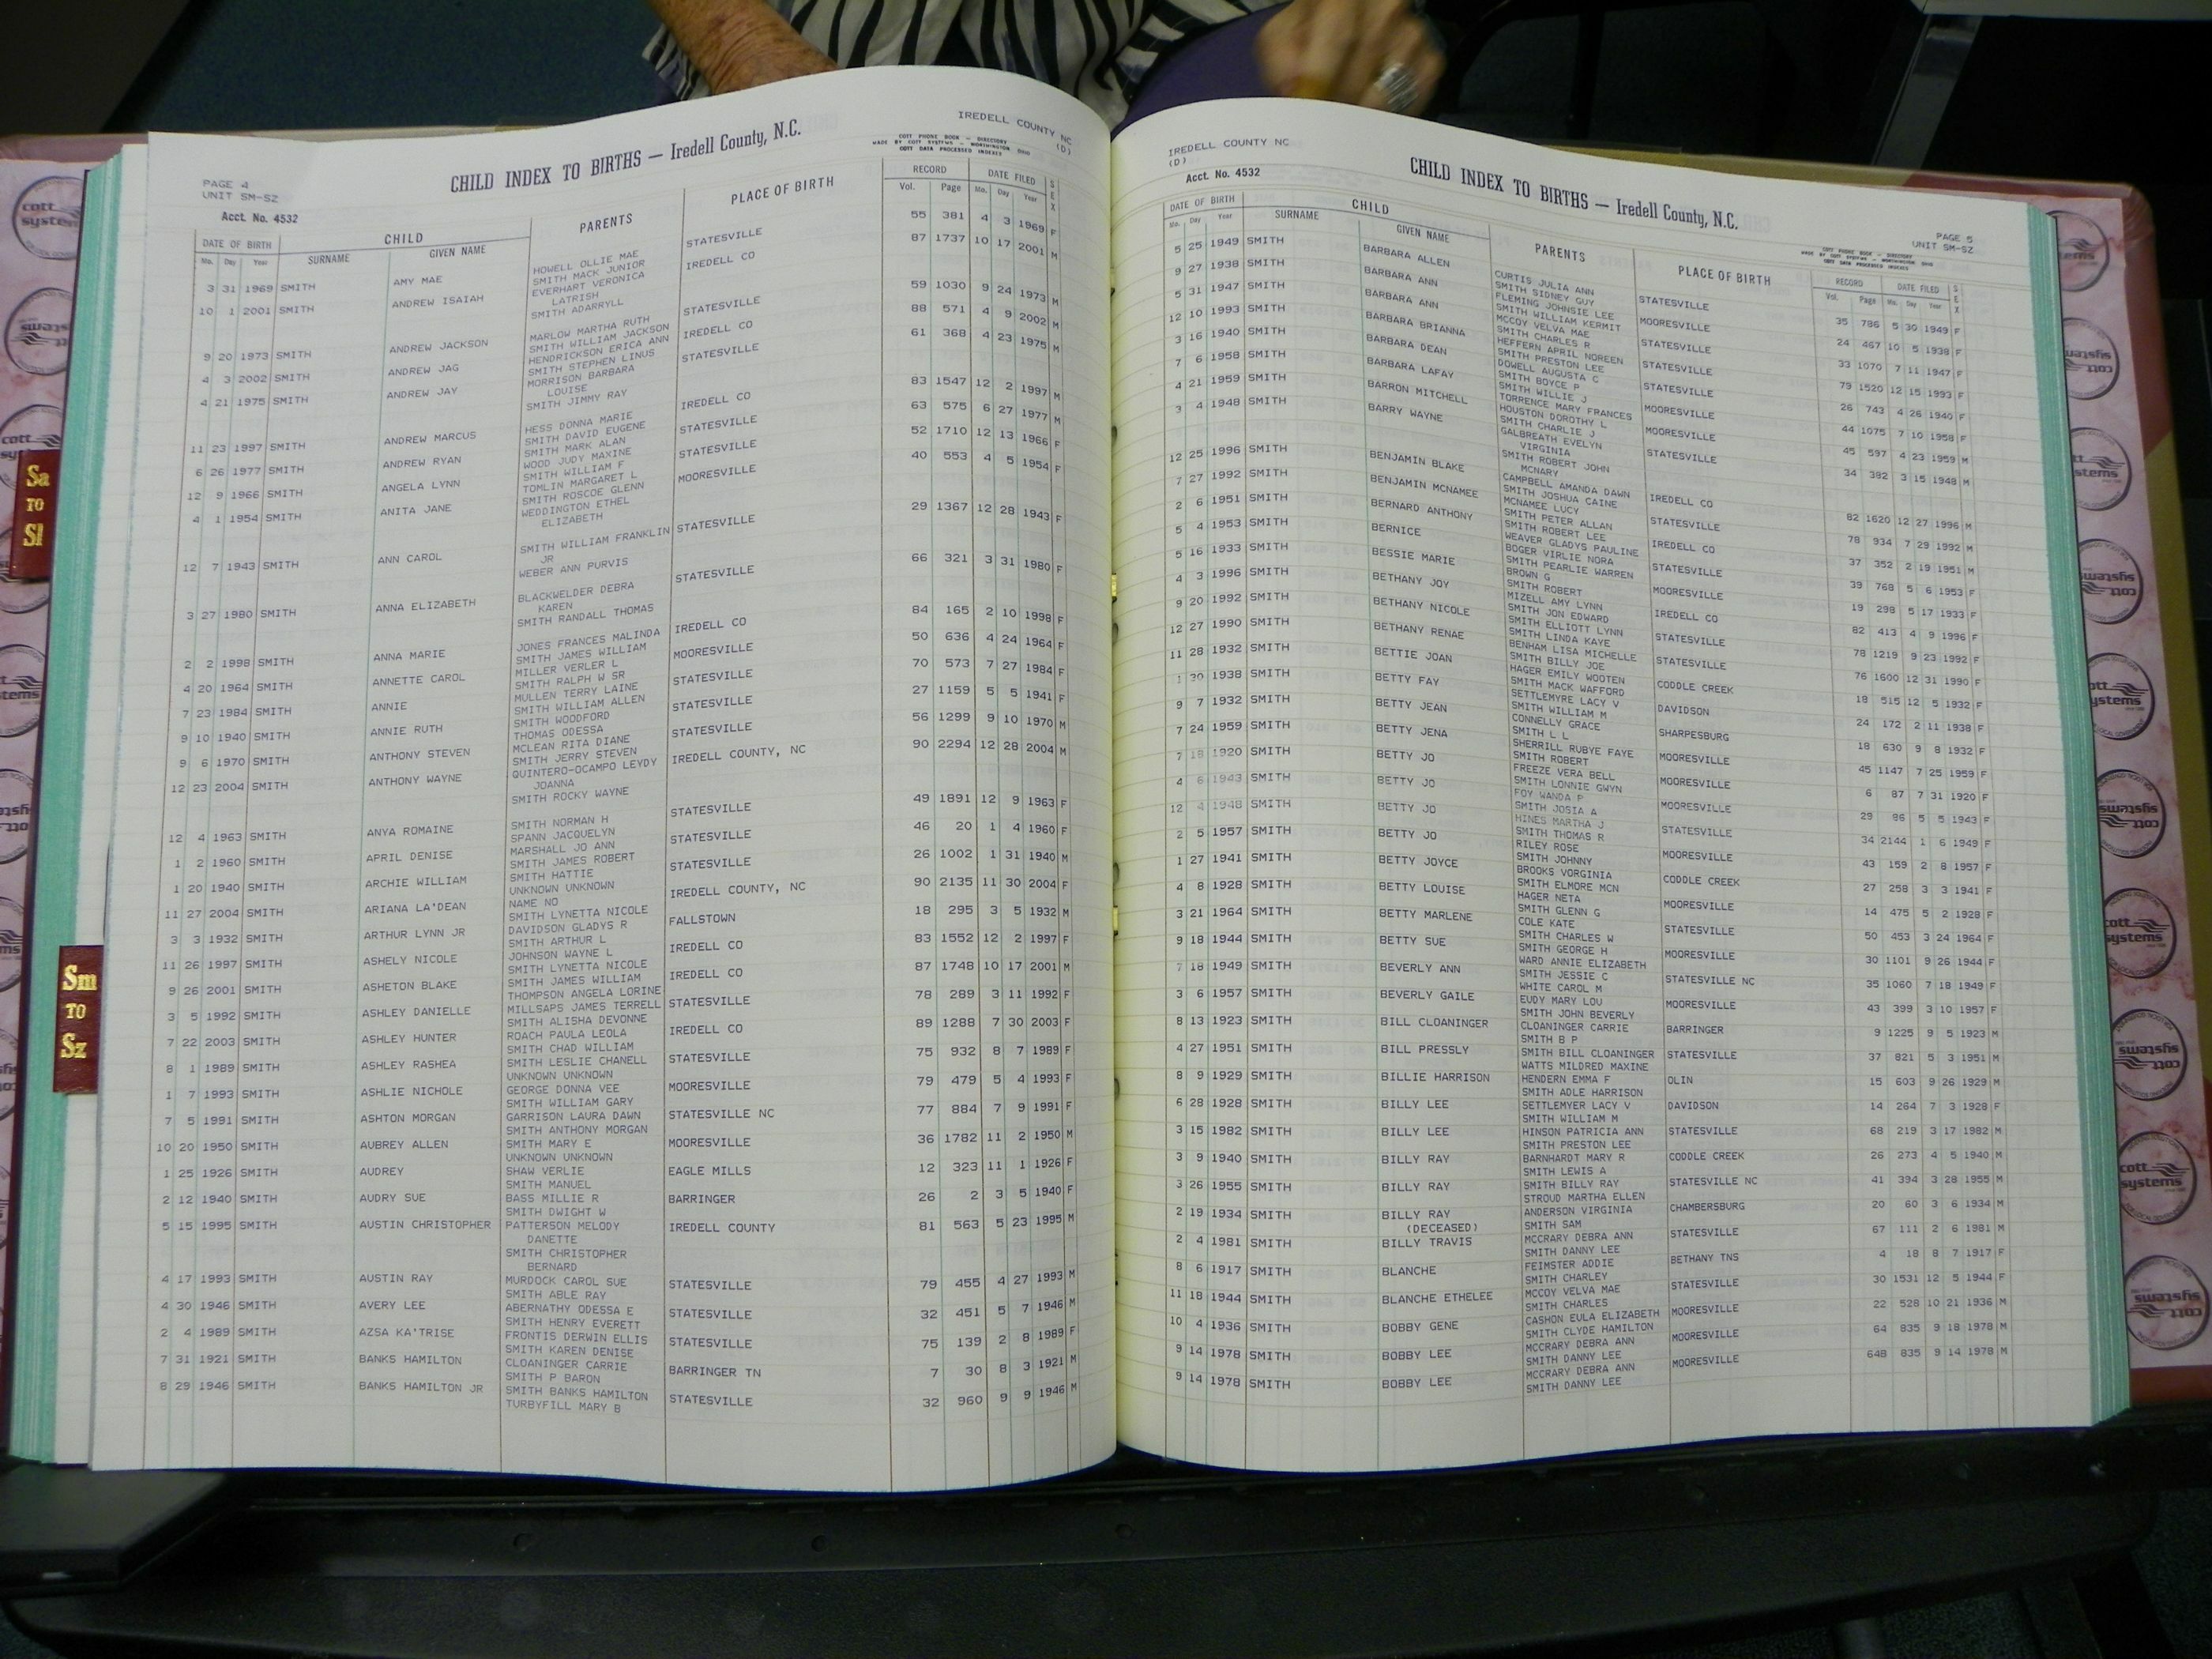 IREDELL COUNTY NC
(D)
CHILD INDEX TO BIRTHS — Iredell County, N.C.
COTT PHONE BOOK — DIRECTORY
MADE BY COTT SYSTEMS — WORTHINGTON OHIO
COTT DATA PROCESSED INDEXES
PAGE 4
UNIT SM-SZ
Acct. No. 4532
DATE OF BIRTH CHILD PARENTS PLACE OF BIRTH RECORD DATE FILED SEX
Mo. Day Year SURNAME GIVEN NAME Vol. Page Mo. Day Year
3 31 1969 SMITH AMY MAE HOWELL OLLIE MAE STATESVILLE 55 381 4 3 1969 F
SMITH MACK JUNIOR
10 1 2001 SMITH ANDREW ISAIAH EVERHART VERONICA IREDELL CO 87 1737 10 17 2001 M
LATRISH
SMITH ADARRYLL
9 20 1973 SMITH ANDREW JACKSON MARLOW MARTHA RUTH STATESVILLE 59 1030 9 24 1973 M
SMITH WILLIAM JACKSON
4 3 2002 SMITH ANDREW JAG HENDRICKSON ERICA ANN IREDELL CO 88 571 4 9 2002 M
SMITH STEPHEN LINUS
4 21 1975 SMITH ANDREW JAY MORRISON BARBARA STATESVILLE 61 368 4 23 1975 M
LOUISE
SMITH JIMMY RAY
11 23 1997 SMITH ANDREW MARCUS HESS DONNA MARIE IREDELL CO 83 1547 12 2 1997 M
SMITH DAVID EUGENE
6 26 1977 SMITH ANDREW RYAN SMITH MARK ALAN STATESVILLE 63 575 6 27 1977 M
WOOD JUDY MAXINE
12 9 1966 SMITH ANGELA LYNN SMITH WILLIAM F STATESVILLE 52 1710 12 13 1966 F
TOMLIN MARGARET L
4 1 1954 SMITH ANITA JANE SMITH ROSCOE GLENN MOORESVILLE 40 553 4 5 1954 F
WEDDINGTON ETHEL
ELIZABETH
12 7 1943 SMITH ANN CAROL SMITH WILLIAM FRANKLIN STATESVILLE 29 1367 12 28 1943 F
JR
WEBER ANN PURVIS
3 27 1980 SMITH ANNA ELIZABETH BLACKWELDER DEBRA STATESVILLE 66 321 3 31 1980 F
KAREN
SMITH RANDALL THOMAS
2 2 1998 SMITH ANNA MARIE JONES FRANCES MALINDA IREDELL CO 84 165 2 10 1998 F
SMITH JAMES WILLIAM
4 20 1964 SMITH ANNETTE CAROL MILLER VERLER L MOORESVILLE 50 636 4 24 1964 F
SMITH RALPH W SR
7 23 1984 SMITH ANNIE MULLEN TERRY LAINE STATESVILLE 70 573 7 27 1984 F
SMITH WILLIAM ALLEN
9 10 1940 SMITH ANNIE RUTH SMITH WOODFORD STATESVILLE 27 1159 5 5 1941 F
THOMAS ODESSA
9 6 1970 SMITH ANTHONY STEVEN MCLEAN RITA DIANE STATESVILLE 56 1299 9 10 1970 M
SMITH JERRY STEVEN
12 23 2004 SMITH ANTHONY WAYNE QUINTERO-OCAMPO LEYDY IREDELL COUNTY, NC 90 2294 12 28 2004 M
JOANNA
SMITH ROCKY WAYNE
12 4 1963 SMITH ANYA ROMAINE SMITH NORMAN H STATESVILLE 49 1891 12 9 1963 F
SPANN JACQUELYN
1 2 1960 SMITH APRIL DENISE MARSHALL JO ANN STATESVILLE 46 20 1 4 1960 F
SMITH JAMES ROBERT
1 20 1940 SMITH ARCHIE WILLIAM SMITH HATTIE STATESVILLE 26 1002 1 31 1940 M
UNKNOWN UNKNOWN
11 27 2004 SMITH ARIANA LA'DEAN NAME NO IREDELL COUNTY, NC 90 2135 11 30 2004 F
SMITH LYNETTA NICOLE
3 3 1932 SMITH ARTHUR LYNN JR DAVIDSON GLADYS R FALLSTOWN 18 295 3 5 1932 M
SMITH ARTHUR L
11 26 1997 SMITH ASHELY NICOLE JOHNSON WAYNE L IREDELL CO 83 1552 12 2 1997 F
SMITH LYNETTA NICOLE
9 26 2001 SMITH ASHETON BLAKE SMITH JAMES WILLIAM IREDELL CO 87 1748 10 17 2001 M
THOMPSON ANGELA LORINE
3 5 1992 SMITH ASHLEY DANIELLE MILLSAPS JAMES TERRELL STATESVILLE 78 289 3 11 1992 F
SMITH ALISHA DEVONNE
7 22 2003 SMITH ASHLEY HUNTER ROACH PAULA LEOLA IREDELL CO 89 1288 7 30 2003 F
SMITH CHAD WILLIAM
8 1 1989 SMITH ASHLEY RASHEA SMITH LESLIE CHANELL STATESVILLE 75 932 8 7 1989 F
UNKNOWN UNKNOWN
1 7 1993 SMITH ASHLIE NICHOLE GEORGE DONNA VEE MOORESVILLE 79 479 5 4 1993 F
SMITH WILLIAM GARY
7 5 1991 SMITH ASHTON MORGAN GARRISON LAURA DAWN STATESVILLE NC 77 884 7 9 1991 F
SMITH ANTHONY MORGAN
10 20 1950 SMITH AUBREY ALLEN SMITH MARY E MOORESVILLE 36 1782 11 2 1950 M
UNKNOWN UNKNOWN
1 25 1926 SMITH AUDREY SHAW VERLIE EAGLE MILLS 12 323 11 1 1926 F
SMITH MANUEL
2 12 1940 SMITH AUDRY SUE BASS MILLIE R BARRINGER 26 2 3 5 1940 F
SMITH DWIGHT W
5 15 1995 SMITH AUSTIN CHRISTOPHER PATTERSON MELODY IREDELL COUNTY 81 563 5 23 1995 M
DANETTE
SMITH CHRISTOPHER
BERNARD
4 17 1993 SMITH AUSTIN RAY MURDOCK CAROL SUE STATESVILLE 79 455 4 27 1993 M
SMITH ABLE RAY
4 30 1946 SMITH AVERY LEE ABERNATHY ODESSA E STATESVILLE 32 451 5 7 1946 M
SMITH HENRY EVERETT
2 4 1989 SMITH AZSA KA'TRISE FRONTIS DERWIN ELLIS STATESVILLE 75 139 2 8 1989 F
SMITH KAREN DENISE
7 31 1921 SMITH BANKS HAMILTON CLOANINGER CARRIE BARRINGER TN 7 30 8 3 1921 M
SMITH P BARON
8 29 1946 SMITH BANKS HAMILTON JR SMITH BANKS HAMILTON STATESVILLE 32 960 9 9 1946 M
TURBYFILL MARY B
IREDELL COUNTY NC
(D)
Acct. No. 4532
CHILD INDEX TO BIRTHS — Iredell County, N.C.
PAGE 5
UNIT SM-SZ
COTT PHONE BOOK — DIRECTORY
MADE BY COTT SYSTEMS — WORTHINGTON OHIO
COTT DATA PROCESSED INDEXES
DATE OF BIRTH CHILD PARENTS PLACE OF BIRTH RECORD DATE FILED SEX
Mo. Day Year SURNAME GIVEN NAME Vol. Page Mo. Day Year
5 25 1949 SMITH BARBARA ALLEN CURTIS JULIA ANN STATESVILLE 35 786 5 30 1949 F
SMITH SIDNEY GUY
9 27 1938 SMITH BARBARA ANN FLEMING JOHNSIE LEE MOORESVILLE 24 467 10 5 1938 F
SMITH WILLIAM KERMIT
5 31 1947 SMITH BARBARA ANN MCCOY VELVA MAE STATESVILLE 33 1070 7 11 1947 F
SMITH CHARLES R
12 10 1993 SMITH BARBARA BRIANNA HEFFERN APRIL NOREEN STATESVILLE 79 1520 12 15 1993 F
SMITH PRESTON LEE
3 16 1940 SMITH BARBARA DEAN DOWELL AUGUSTA C STATESVILLE 26 743 4 26 1940 F
SMITH BOYCE P
7 6 1958 SMITH BARBARA LAFAY SMITH WILLIE J MOORESVILLE 44 1075 7 10 1958 F
TORRENCE MARY FRANCES
4 21 1959 SMITH BARRON MITCHELL HOUSTON DOROTHY L MOORESVILLE 45 597 4 23 1959 M
SMITH CHARLIE J
3 4 1948 SMITH BARRY WAYNE GALBREATH EVELYN STATESVILLE 34 382 3 15 1948 M
VIRGINIA
SMITH ROBERT JOHN
MCNARY
12 25 1996 SMITH BENJAMIN BLAKE CAMPBELL AMANDA DAWN IREDELL CO 82 1620 12 27 1996 M
SMITH JOSHUA CAINE
7 27 1992 SMITH BENJAMIN MCNAMEE MCNAMEE LUCY STATESVILLE 78 934 7 29 1992 M
SMITH PETER ALLAN
2 6 1951 SMITH BERNARD ANTHONY SMITH ROBERT LEE IREDELL CO 37 352 2 19 1951 M
WEAVER GLADYS PAULINE
5 4 1953 SMITH BERNICE BOGER VIRLIE NORA STATESVILLE 39 768 5 6 1953 F
SMITH PEARLIE WARREN
5 16 1933 SMITH BESSIE MARIE BROWN G MOORESVILLE 19 298 5 17 1933 F
SMITH ROBERT
4 3 1996 SMITH BETHANY JOY MIZELL AMY LYNN IREDELL CO 82 413 4 9 1996 F
SMITH JON EDWARD
9 20 1992 SMITH BETHANY NICOLE SMITH ELLIOTT LYNN STATESVILLE 78 1219 9 23 1992 F
SMITH LINDA KAYE
12 27 1990 SMITH BETHANY RENAE BENHAM LISA MICHELLE STATESVILLE 76 1600 12 31 1990 F
SMITH BILLY JOE
11 28 1932 SMITH BETTIE JOAN HAGER EMILY WOOTEN CODDLE CREEK 18 515 12 5 1932 F
SMITH MACK WAFFORD
1 30 1938 SMITH BETTY FAY SETTLEMYRE LACY V DAVIDSON 24 172 2 11 1938 F
SMITH WILLIAM M
9 7 1932 SMITH BETTY JEAN CONNELLY GRACE SHARPESBURG 18 630 9 8 1932 F
SMITH L L
7 24 1959 SMITH BETTY JENA SHERRILL RUBYE FAYE MOORESVILLE 45 1147 7 25 1959 F
SMITH ROBERT
7 18 1920 SMITH BETTY JO FREEZE VERA BELL MOORESVILLE 6 87 7 31 1920 F
SMITH LONNIE GWYN
4 6 1943 SMITH BETTY JO FOY WANDA P MOORESVILLE 29 86 5 5 1943 F
SMITH JOSIA A
12 4 1948 SMITH BETTY JO HINES MARTHA J STATESVILLE 34 2144 1 6 1949 F
SMITH THOMAS R
2 5 1957 SMITH BETTY JO RILEY ROSE MOORESVILLE 43 159 2 8 1957 F
SMITH JOHNNY
1 27 1941 SMITH BETTY JOYCE BROOKS VORGINIA CODDLE CREEK 27 258 3 3 1941 F
SMITH ELMORE MCN
4 8 1928 SMITH BETTY LOUISE HAGER NETA MOORESVILLE 14 475 5 2 1928 F
SMITH GLENN G
3 21 1964 SMITH BETTY MARLENE COLE KATE STATESVILLE 50 453 3 24 1964 F
SMITH CHARLES W
9 18 1944 SMITH BETTY SUE SMITH GEORGE H MOORESVILLE 30 1101 9 26 1944 F
WARD ANNIE ELIZABETH
7 18 1949 SMITH BEVERLY ANN SMITH JESSIE C STATESVILLE NC 35 1060 7 18 1949 F
WHITE CAROL M
3 6 1957 SMITH BEVERLY GAILE EUDY MARY LOU MOORESVILLE 43 399 3 10 1957 F
SMITH JOHN BEVERLY
8 13 1923 SMITH BILL CLOANINGER CLOANINGER CARRIE BARRINGER 9 1225 9 5 1923 M
SMITH B P
4 27 1951 SMITH BILL PRESSLY SMITH BILL CLOANINGER STATESVILLE 37 821 5 3 1951 M
WATTS MILDRED MAXINE
8 9 1929 SMITH BILLIE HARRISON HENDERN EMMA F OLIN 15 603 9 26 1929 M
SMITH ADLE HARRISON
6 28 1928 SMITH BILLY LEE SETTLEMYER LACY V DAVIDSON 14 264 7 3 1928 F
SMITH WILLIAM M
3 15 1982 SMITH BILLY LEE HINSON PATRICIA ANN STATESVILLE 68 219 3 17 1982 M
SMITH PRESTON LEE
3 9 1940 SMITH BILLY RAY BARNHARDT MARY R CODDLE CREEK 26 273 4 5 1940 M
SMITH LEWIS A
3 26 1955 SMITH BILLY RAY SMITH BILLY RAY STATESVILLE NC 41 394 3 28 1955 M
STROUD MARTHA ELLEN
2 19 1934 SMITH BILLY RAY ANDERSON VIRGINIA CHAMBERSBURG 20 60 3 6 1934 M
(DECEASED) SMITH SAM
2 4 1981 SMITH BILLY TRAVIS MCCRARY DEBRA ANN STATESVILLE 67 111 2 6 1981 M
SMITH DANNY LEE
8 6 1917 SMITH BLANCHE FEIMSTER ADDIE BETHANY TNS 4 18 8 7 1917 F
SMITH CHARLEY
11 18 1944 SMITH BLANCHE ETHELEE MCCOY VELVA MAE STATESVILLE 30 1531 12 5 1944 F
SMITH CHARLES
10 4 1936 SMITH BOBBY GENE CASHON EULA ELIZABETH MOORESVILLE 22 528 10 21 1936 M
SMITH CLYDE HAMILTON
9 14 1978 SMITH BOBBY LEE MCCRARY DEBRA ANN MOORESVILLE 64 835 9 18 1978 M
SMITH DANNY LEE
9 14 1978 SMITH BOBBY LEE MCCRARY DEBRA ANN MOORESVILLE 648 835 9 14 1978 M
SMITH DANNY LEE
Sa
TO
Sl
Sm
TO
Sz
cott
systems